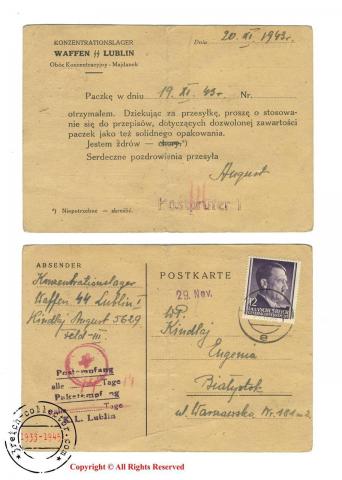 KONZENTRATIONSLAGER
WAFFEN ϟϟ LUBLIN
Obóz Koncentracyjny - Majdanek
Dnia 20. XI. 1943r.
Paczkę w dniu 19. XI. 43r. Nr.
otrzymałem. Dziękując za przesyłkę, proszę o stosowa-
nie się do przepisów, dotyczących dozwolonej zawartości
paczek jako też solidnego opakowania.
Jestem zdrów — chory.*)
Serdeczne pozdrowienia przesyła
August
Postprüfer
*) Niepotrzebne — skreślić.
ABSENDER
Konzentrationslager
Waffen ϟϟ Lublin I
Kindlaj August 5629
feld-III.
Postempfang
alle Tage
Paketempfang
Tage
K. L. Lublin
POSTKARTE
29. Nov.
12
DEUTSCHES REICH
GENERALGOUVERNEMENT
WP.
Kindlaj
Eugenia
Białystok
ul. Warszawska Nr.
3reich-collector.com
1933-1945
Copyright © All Rights Reserved